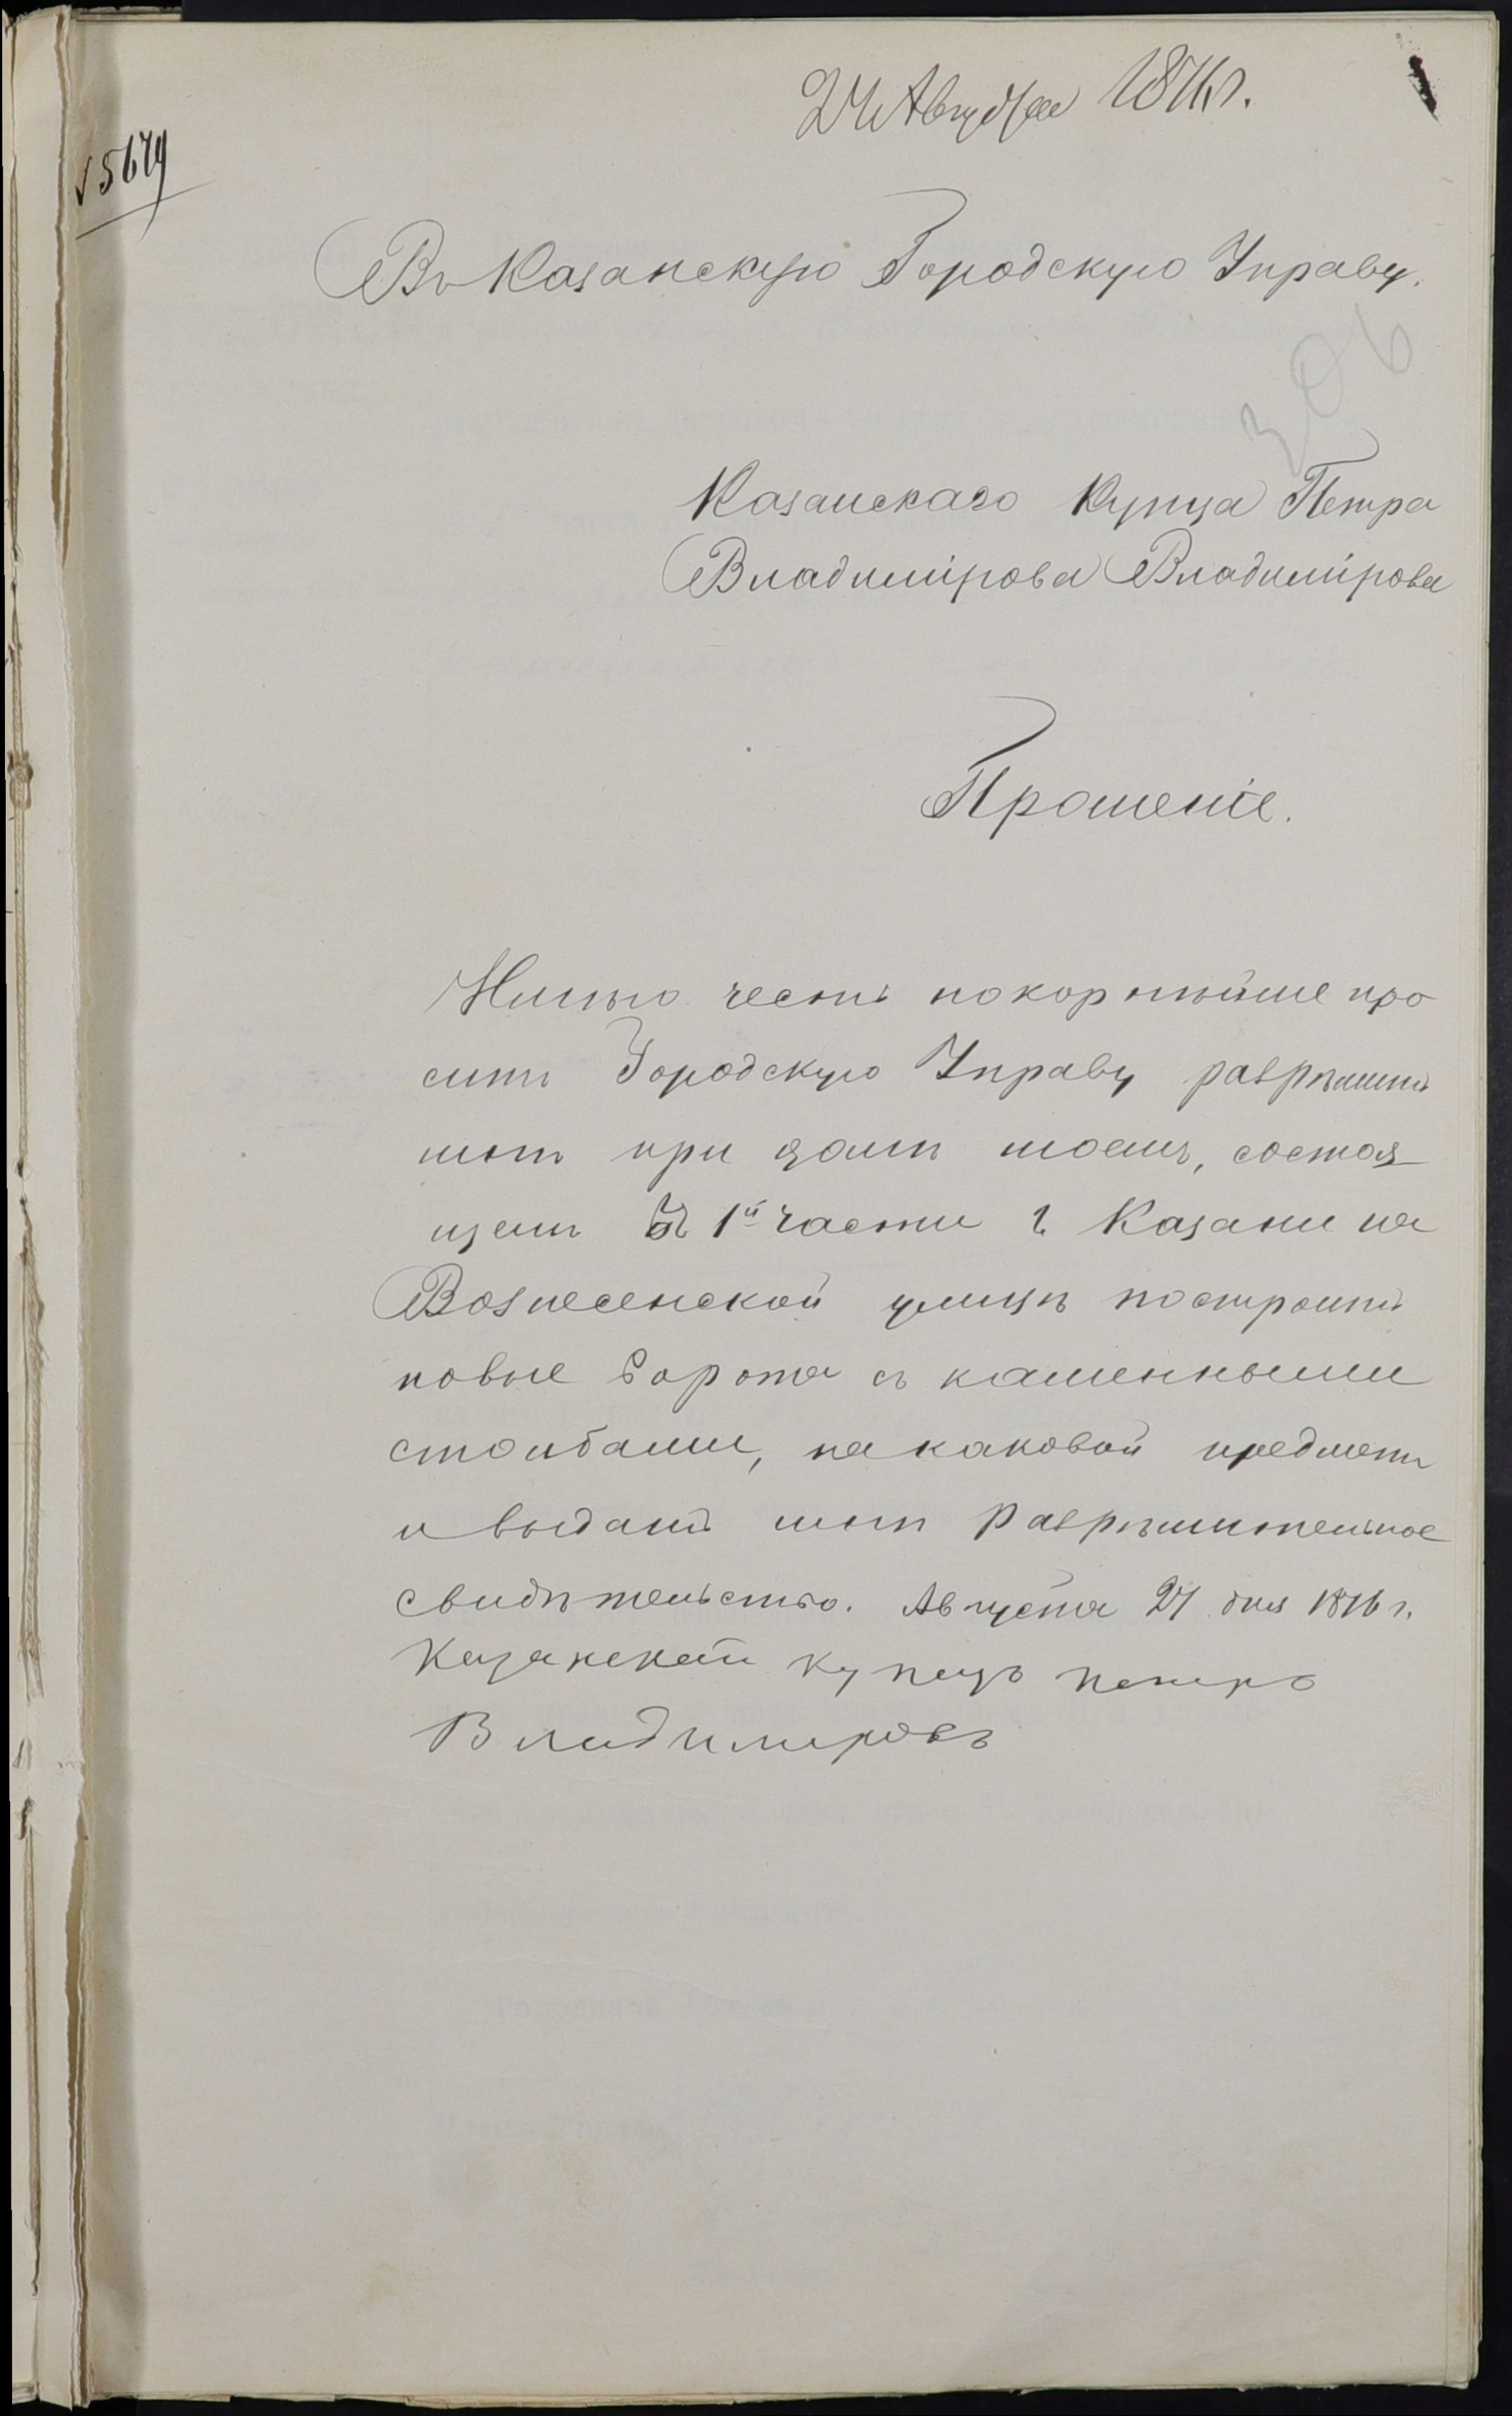 24 Августа 1876 г.
5679
Въ Казанскую Городскую Управу.
306
Казанскаго Купца Петра
Владимірова Владимірова
Прошеніе.
Имѣю честь покорнѣйше про
сить Городскую Управу разрѣшить
мнѣ при домѣ моемъ, состоя
щемъ въ 1й части г. Казани на
Вознесенской улицѣ построить
новые ворота съ каменными
столбами, на каковой предметъ
и выдать мнѣ разрѣшительное
свидѣтельство. Августа 24 дня 1876 г.
Казанской купецъ Петръ
Владимировъ